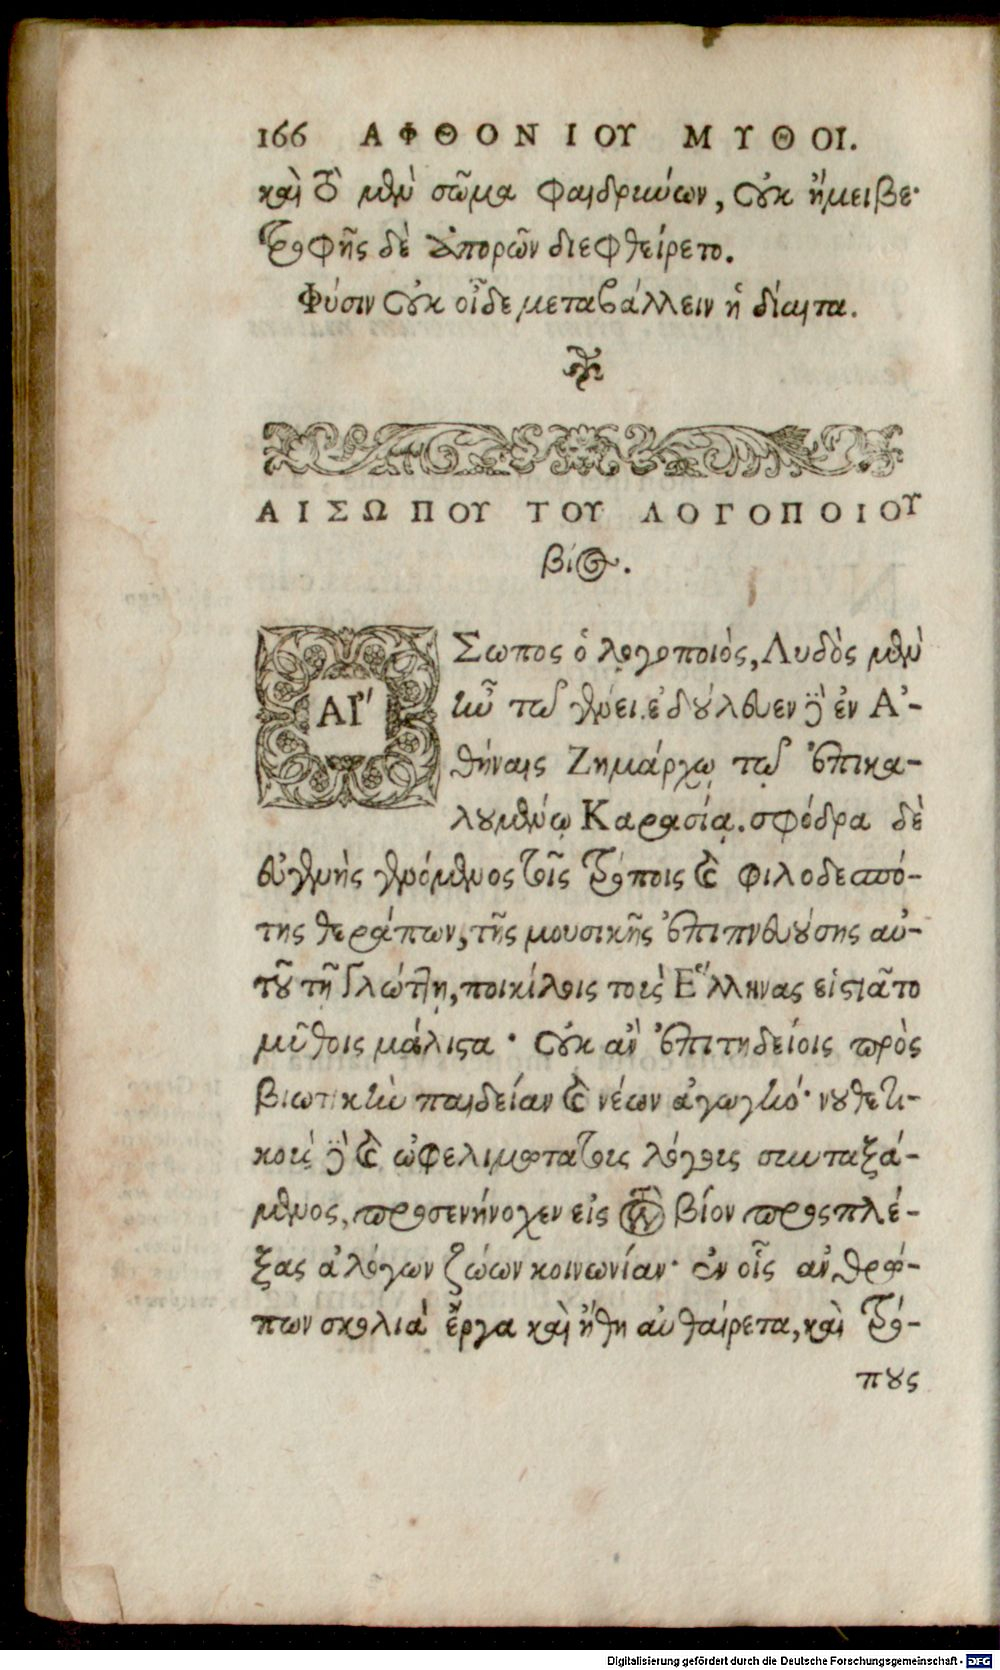 166 ΑΦΘΟΝΙΟΥ ΜΥΘΟΙ.
καὶ τὸ μὲν σῶμα φαιδρύνων, οὐκ ἤμειβε·
τροφῆς δὲ ἀπορῶν διεφθείρετο.
Φύσιν οὐκ οἶδε μεταβάλλειν ἡ δίαιτα.
ΑΙΣΩΠΟΥ ΤΟΥ ΛΟΓΟΠΟΙΟΥ
βίος.
ΑἼΣωπος ὁ λογοποιὸς, Λυδὸς μὲν
ἦν τῷ γένει. ἐδούλευεν δὲ ἐν Ἀ-
θήναις Ζημάρχῳ τῷ ἐπικα-
λουμένῳ Καρασίᾳ. σφόδρα δὲ
εὐγενὴς γενόμενος τοῖς τρόποις καὶ φιλοδεσπό-
της θεράπων, τῆς μουσικῆς ἐπιπνευούσης αὐ-
τοῦ τῇ γλώττῃ, ποικίλοις τοὺς Ἕλληνας εἱστιᾶτο
μύθοις μάλιστα· οὐκ ἀνεπιτηδείοις πρὸς
βιωτικὴν παιδείαν καὶ νέων ἀγωγήν· νουθετι-
κοὺς δὲ καὶ ὠφελιμωτάτους λόγους συνταξά-
μενος, προσενήνοχεν εἰς τὸν βίον προσπλέ-
ξας ἀλόγων ζώων κοινωνίαν· ἐν οἷς ἀνθρώ-
πων σκολιὰ ἔργα καὶ ἤθη αὐθαίρετα, καὶ τρό-
πους
Digitalisierung gefördert durch die Deutsche Forschungsgemeinschaft - DFG